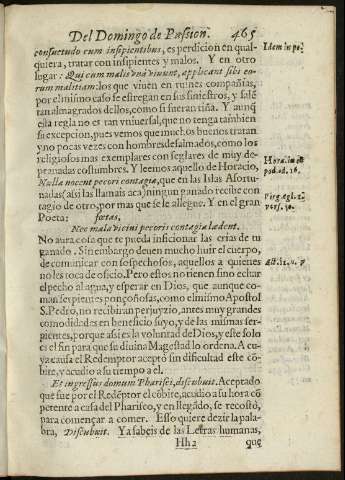 Del Domingo de Passion. 465
consuetudo cum insipientibus, es perdicion en qual-
quiera, tratar con insipientes y malos. Y en otro
Idem in pe.
lugar: Qui cum malis vna viuunt, applicant sibi eo-
rum malitiam: los que viuen en ruines compañias,
por el mismo caso se estregan en sus siniestros, y salē
tan almagrados dellos, como si fueran tiña. Y aunq̄
esta regla no es tan vniuersal, que no tenga tambien
su excepcion, pues vemos que muchos buenos tratan
y no pocas vezes con hombres desalmados, como los
religiosos mas exemplares con seglares de muy de-
prauadas costumbres. Y leemos aquello de Horacio,
Nulla nocent pecori contagia, que en las Islas Afortu-
nadas (assi las llamais aca) ningun ganado recibe con
tagio de otro, por mas que se le allegue. Y en el gran
Poeta:
Nec mala vicini pecoris contagia lædent.
No aura cosa que te pueda inficionar las crias de tu
ganado. Sin embargo deuen mucho huir el cuerpo,
de comunicar con sospechosos, aquellos a quienes
no les toca de oficio. Pero essos no tienen sino echar
el pecho al agua, y esperar en Dios, que aunque co-
man serpientes ponçoñosas, como el mismo Apostol
S. Pedro, no recibiran perjuyzio, antes muy grandes
comodidades en beneficio suyo, y de las mismas ser-
pientes, porque assi es la voluntad del Dios, y este solo
es el fin para que su diuina Magestad lo ordena. A cu
ya causa el Redemptor aceptò sin dificultad este cō-
bite, y acudio a su tiempo a el.
Et ingressus domum Pharisei, discubuit. Aceptado
que fue por el Redēptor el cōbite, acudio a su hora cō
petente a casa del Phariseo, y en llegādo, se recostò,
para començar a comer. Esso quiere dezir la pala-
bra, Discubuit. Ya sabeis de las Letras humanas,
Hh 2 que